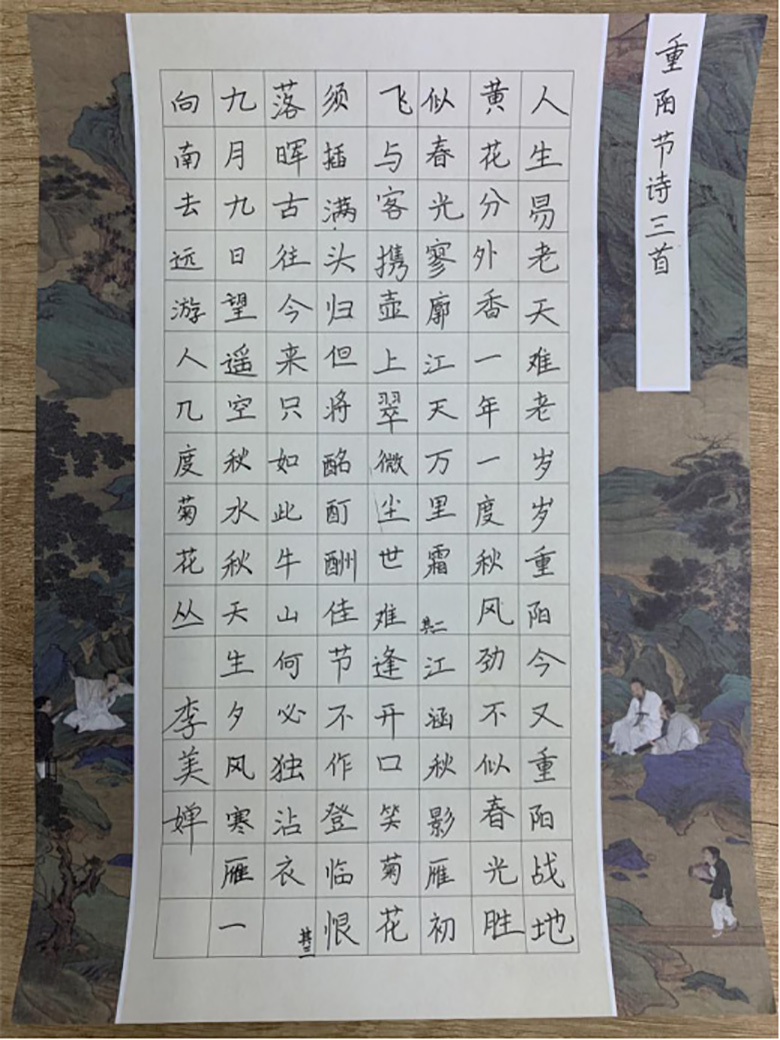 重阳节诗三首
人生易老天难老岁岁重阳今又重阳战地
黄花分外香一年一度秋风劲不似春光胜
似春光寥廓江天万里霜其二江涵秋影雁初
飞与客携壶上翠微尘世难逢开口笑菊花
须插满头归但将酩酊酬佳节不作登临恨
落晖古往今来只如此牛山何必独沾衣其三
九月九日望遥空秋水秋天生夕风寒雁一
向南去远游人几度菊花丛
李美婵